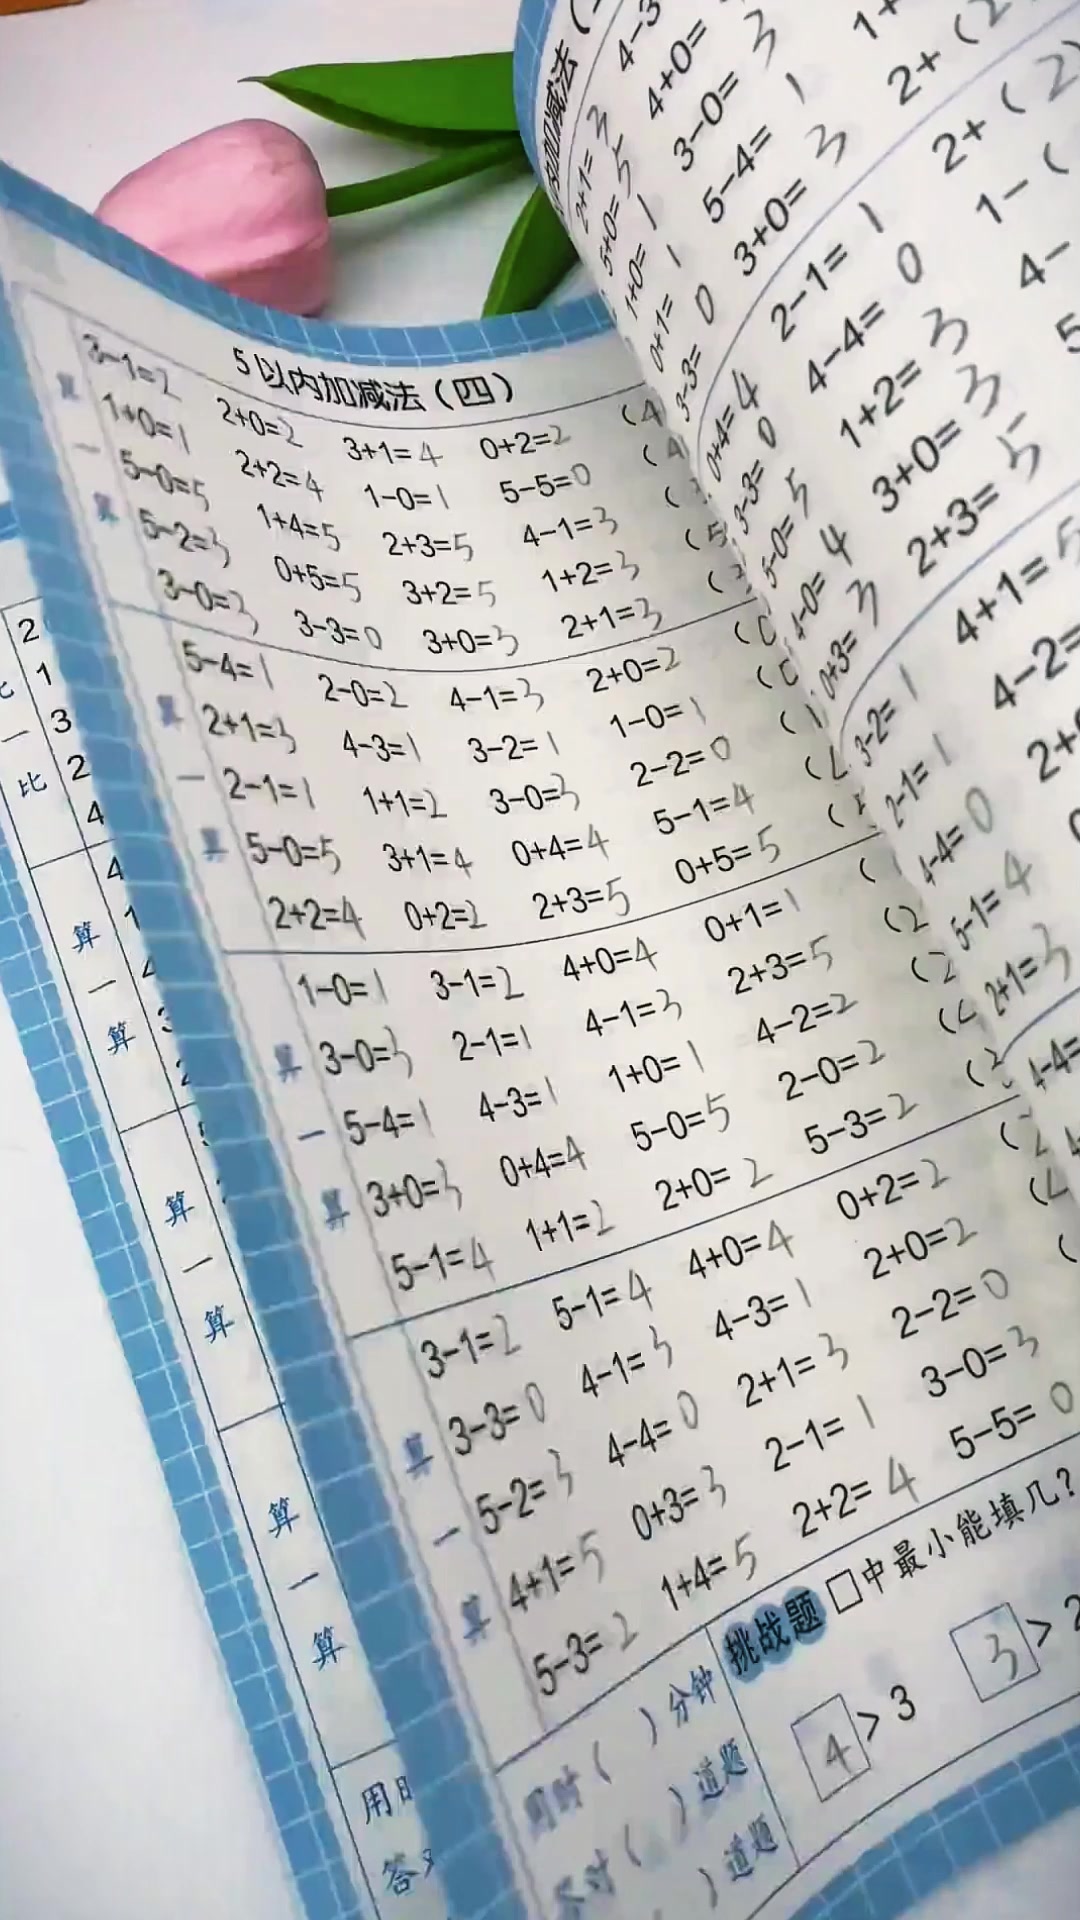 5以内加减法（四）
算一算
3-1=2 2+0=2 3+1=4 0+2=2 (4
1+0=1 2+2=4 1-0=1 5-5=0 (4
5-0=5 1+4=5 2+3=5 4-1=3
5-2=3 0+5=5 3+2=5 1+2=3 (5
3-0=3 3-3=0 3+0=3 2+1=3
算一算
5-4=1 2-0=2 4-1=3 2+0=2
2+1=3 4-3=1 3-2=1 1-0=1
2-1=1 1+1=2 3-0=3 2-2=0 (1
5-0=5 3+1=4 0+4=4 5-1=4
2+2=4 0+2=2 2+3=5 0+5=5
算一算
1-0=1 3-1=2 4+0=4 0+1=1
3-0=3 2-1=1 4-1=3 2+3=5 (2
5-4=1 4-3=1 1+0=1 4-2=2 (2
3+0=3 0+4=4 5-0=5 2-0=2
5-1=4 1+1=2 2+0=2 5-3=2 (2
算一算
3-1=2 5-1=4 4+0=4 0+2=2
3-3=0 4-1=3 4-3=1 2+0=2
5-2=3 4-4=0 2+1=3 2-2=0
4+1=5 0+3=3 2-1=1 3-0=3
5-3=2 1+4=5 2+2=4 5-5=0
用时( )分钟
答对( )道题
)道题
挑战题 □中最小能填几？
4>3 3>2
内加减法（
2+1=3
5+0=5
1+0=1
0+1=1
3-3=0
4-3
4+0=
3-0=3
5-4=1
3+0=3
1+
2+(2
0+4=4
3-3=0
5-0=5
4-0=4
0+3=3
2-1=1
4-4=0
1+2=3
3+0=3
2+3=5
2+(2)
1-(
4-
5
3-2=1
2-1=1
4-4=0
5-1=4
2+1=3
4+1=5
4-2=
2+
4-4=
2
1
3
2
4
比
4
1
4
3
2
算一算
算一算
算一算
用时
答